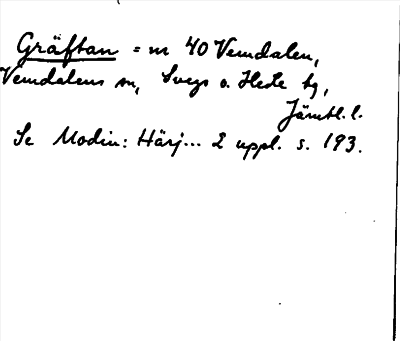 Gräftan = n 40 Vemdalen,
Vemdalens sn, Svegs o. Hede tg,
Jämtl. l.
Se Modin: Härj... 2 uppl. s. 193.